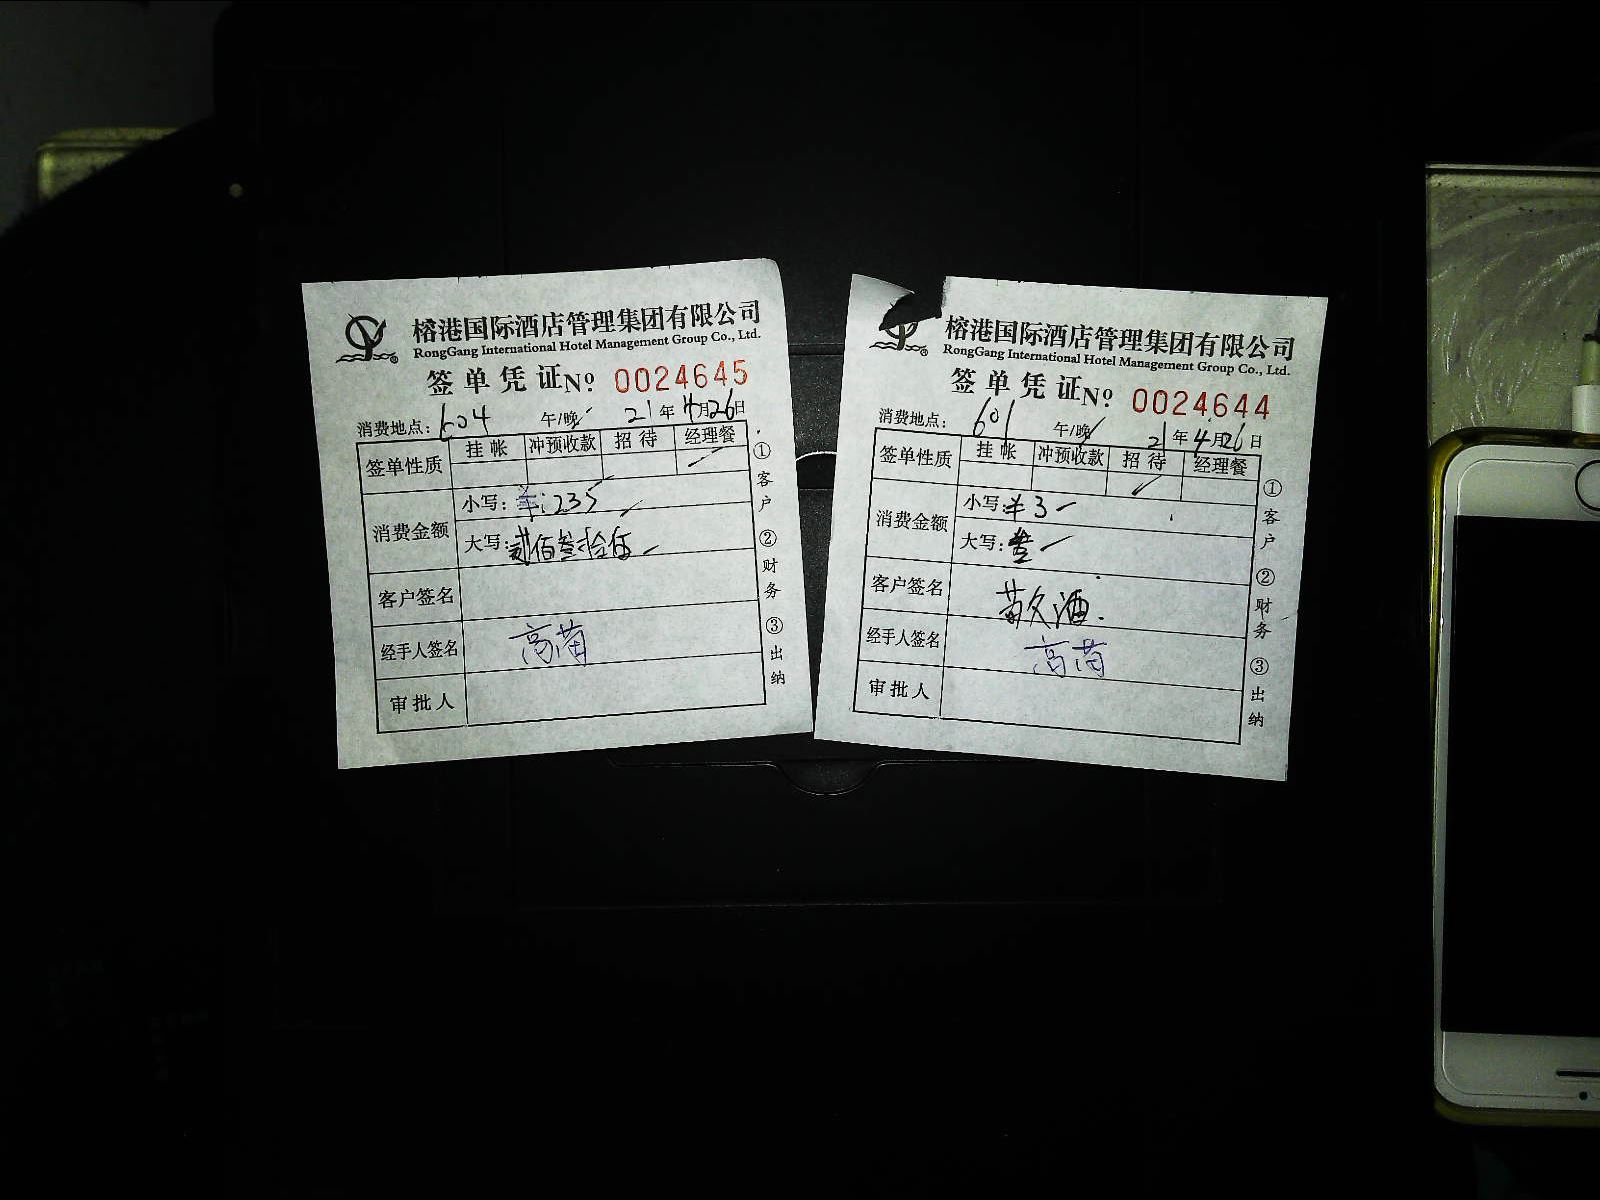 榕港国际酒店管理集团有限公司
RongGang International Hotel Management Group Co., Ltd.
签单凭证 Nº 0024645
消费地点: 604 午/晚 21年4月26日
签单性质 挂帐 冲预收款 招待 经理餐
消费金额
小写: ¥:235
大写: 贰佰叁拾伍
客户签名
经手人签名 高苗
审批人
①客户 ②财务 ③出纳
榕港国际酒店管理集团有限公司
RongGang International Hotel Management Group Co., Ltd.
签单凭证 Nº 0024644
消费地点: 601 午/晚 21年4月26日
签单性质 挂帐 冲预收款 招待 经理餐
消费金额
小写: ¥3
大写: 叁
客户签名 酒.
经手人签名 高苗
审批人
①客户 ②财务 ③出纳